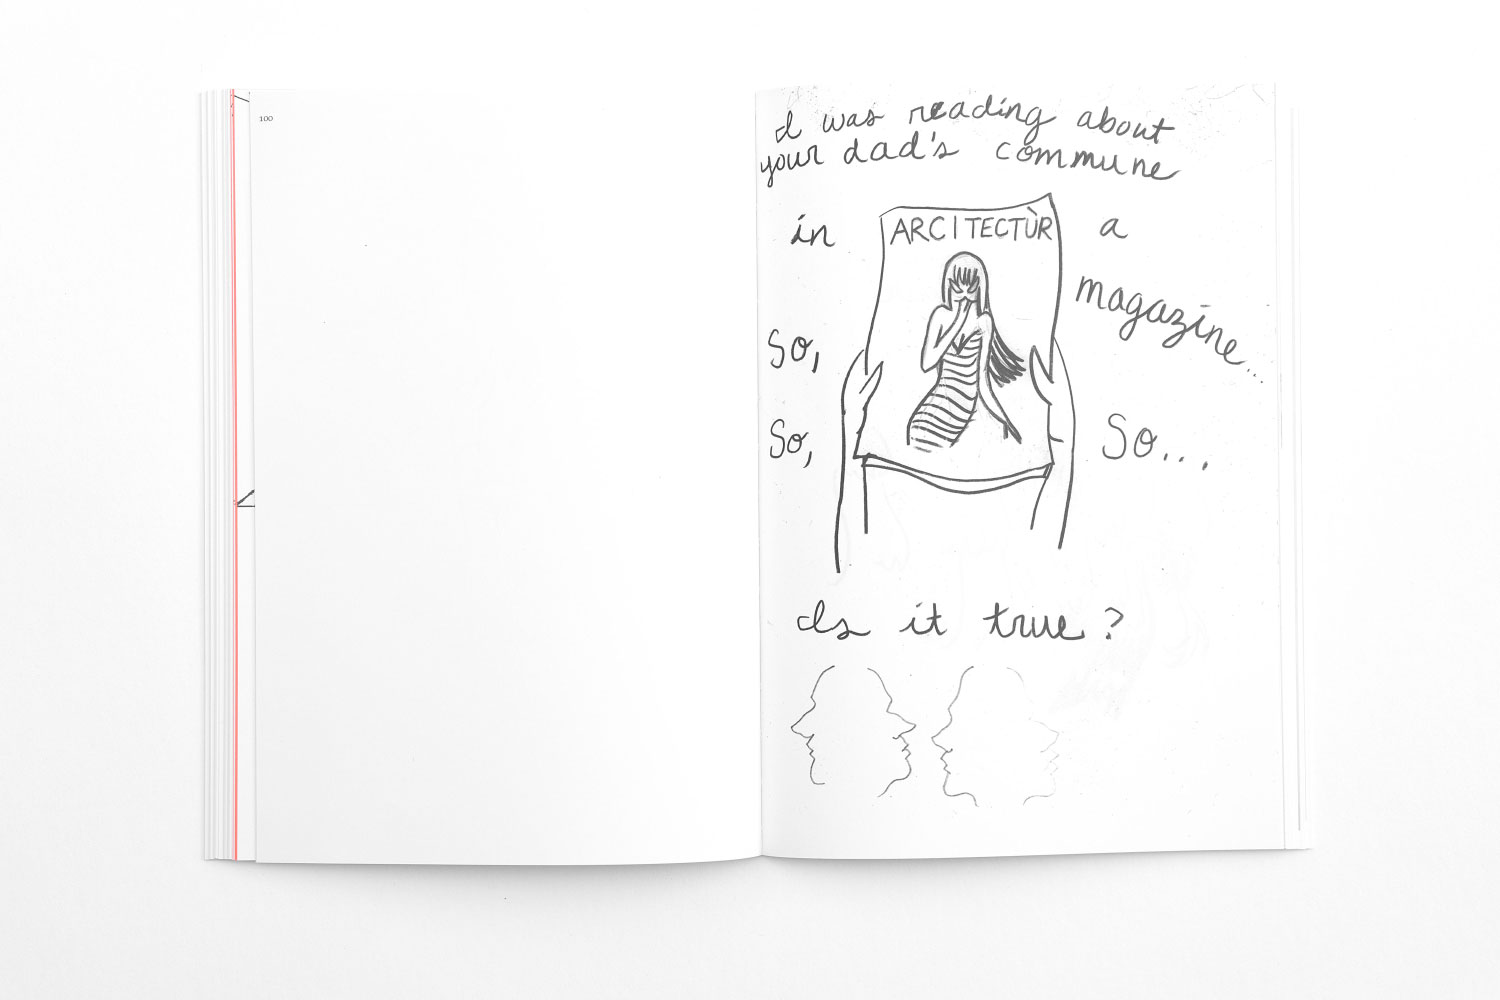 100
I was reading about
your dad's commune
in ARCITECTÙR a
magazine...
So,
So, So...
Is it true?